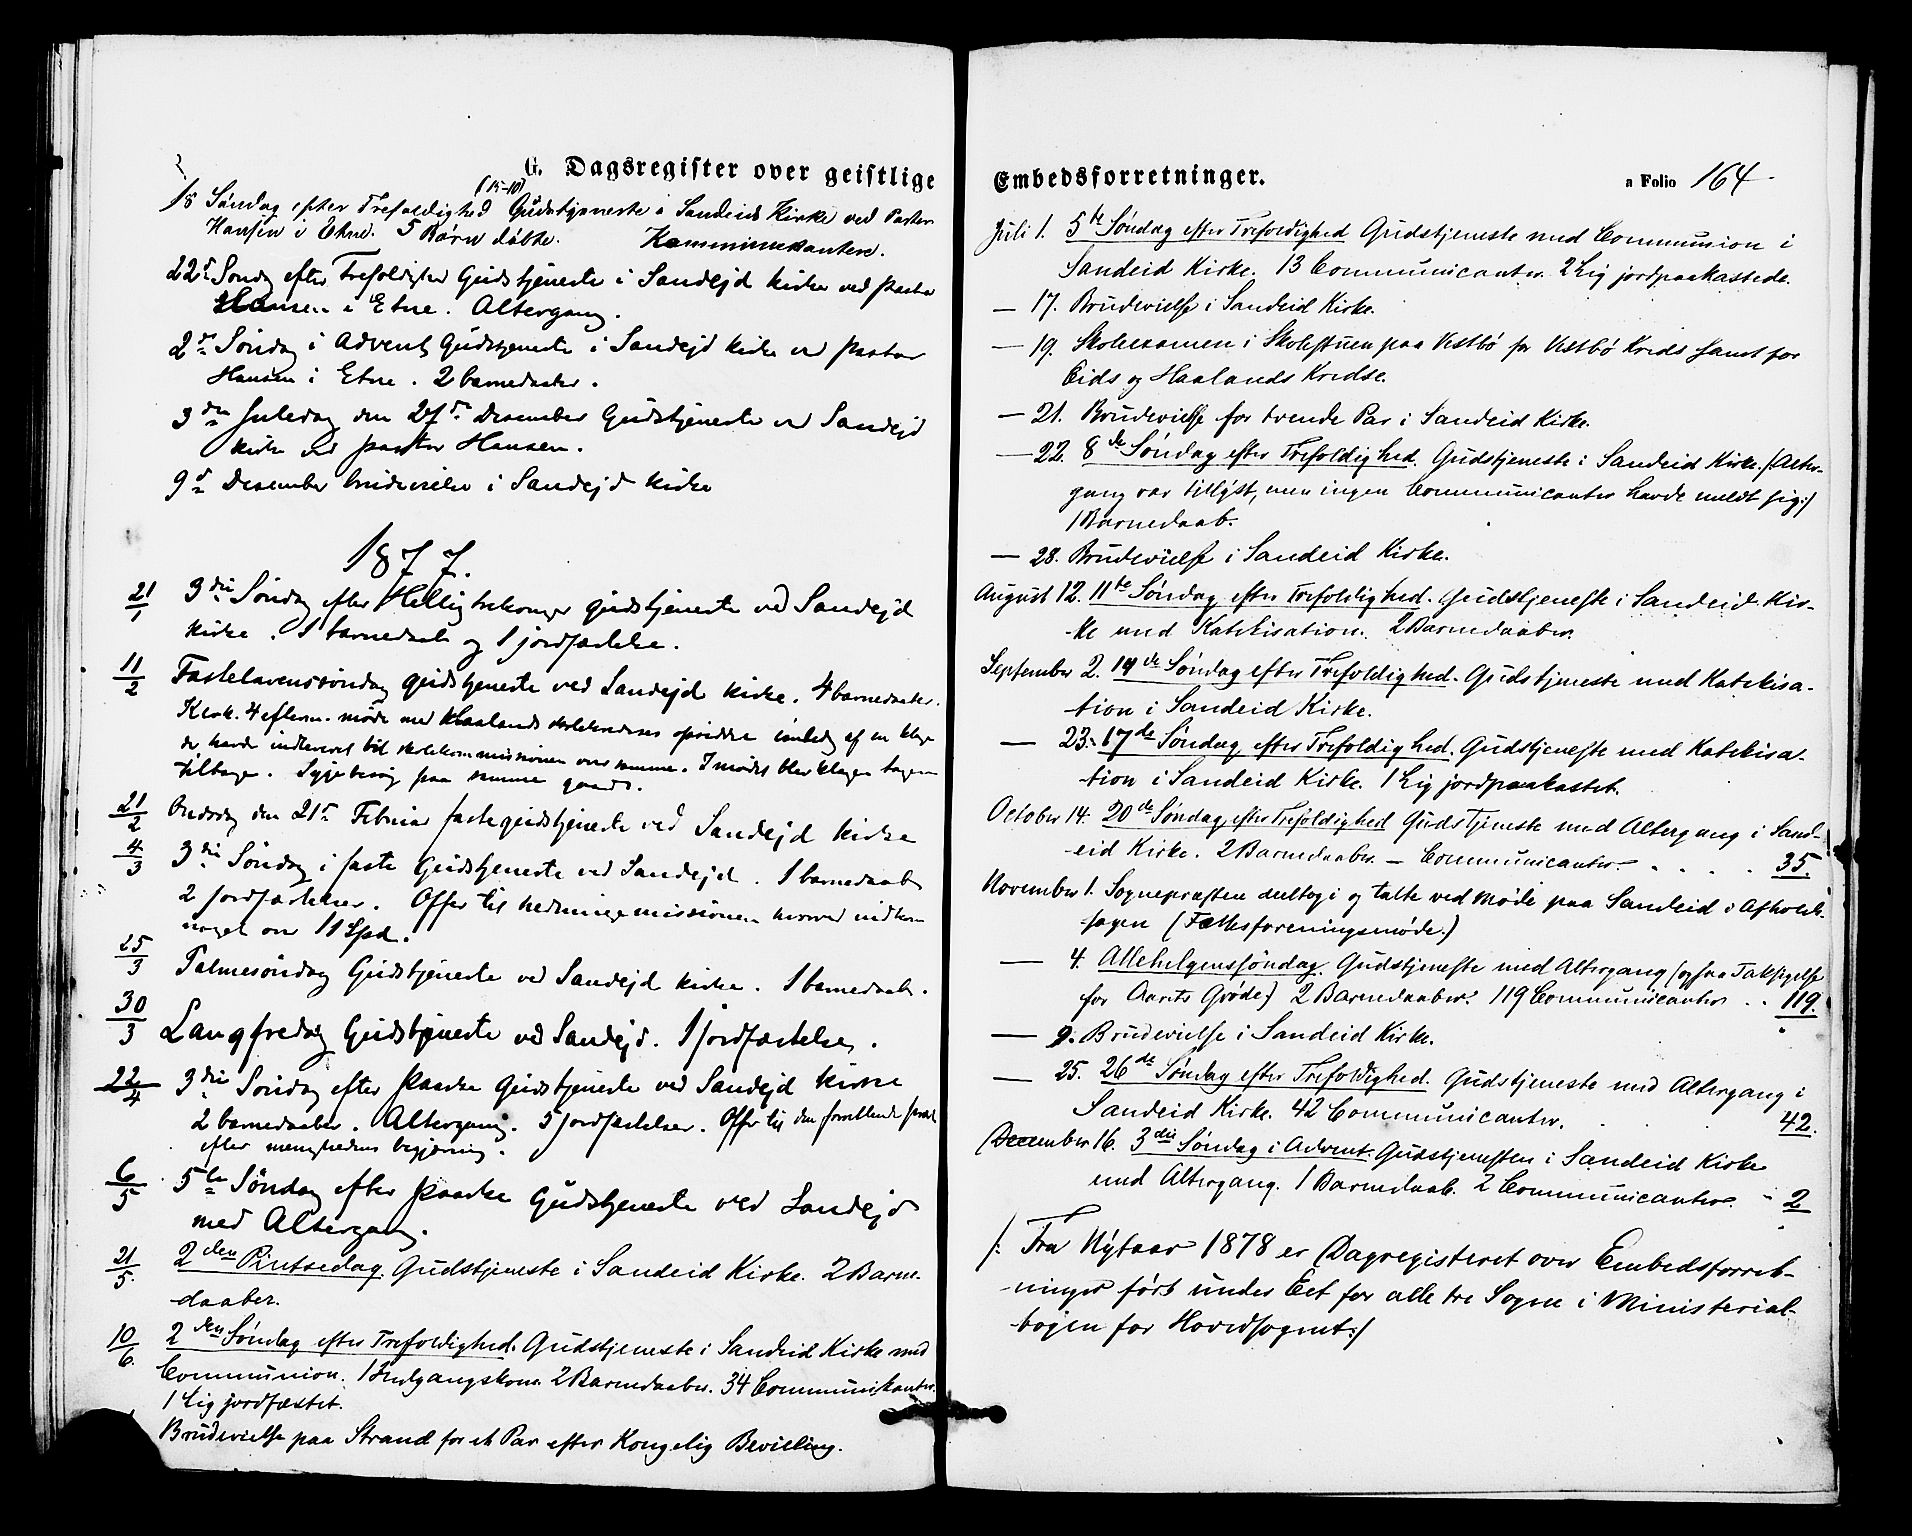 G. Dagsregister over geistlige
18 Søndag efter Trefoldighed (15-10) Gudstjeneste i Sandeid Kirke ved Pastor
Hansen i Etne. 5 Børn døbte. Kommunikantere.
22de Søndag efter Trefoldighed Gudstjeneste i Sandejd kirke ved Pastor
Hansen i Etne. Altergang.
2den Søndag i Advent Gudstjeneste i Sandejd kirke ved pastor
Hansen i Etne. 2 barnedaaber.
3die Juledag den 27de Desember Gudstjeneste ved Sandejd
kirke ved pastor Hansen.
9de Desember brudevielse i Sandejd kirke
1877.
21/1 3die Søndag efter Helligtrekonger gudstjeneste ved Sandejd
kirke. 1 barnedaab og 1 jordfæstelse.
11/2 Fastelavenssøndag gudstjeneste ved Sandejd kirke. 4 barnedaaber.
Klok. 4 efterm. møde med Haalands skolekredses opsiddere i anledng af en klage
de havde indleveret til skolekommissionen over samme. I mødet blev klagen tagen
tilbage. Sygebesøg paa samme gaard.
21/2 Onsdag den 21de Februar fastegudstjeneste ved Sandejd kirke
4/3 3die Søndag i faste Gudstjeneste ved Sandejd. 1 barnedaab
2 jordfæstelser. Offer til hedningemissionen hvorved indkom
noget over 11 Spd.
25/3 Palmesøndag Gudstjeneste ved Sandejd kirke. 1 barnedaab.
30/3 Langfredag Gudstjeneste ved Sandejd. 1 jordfæstelse.
22/4 3die Søndag efter Paaske Gudstjeneste ved Sandejd kirke
2 barnedaaber. Altergang. 5 jordfæstelser. Offer til den
efter menighedens begjæring.
6/5 5te Søndag efter paaske Gudstjeneste ved Sandejd
med Altergang.
21/5 2den Pintsedag. Gudstjeneste i Sandeid Kirke. 2 Barne-
daaber.
10/6. 2den Søndag efter Trefoldighed. Gudstjeneste i Sandeid Kirke med
Communion. 1 Indgangskone. 2 Barnedaaber. 34 Communikanter.
1 Lig jordfæstet.
Brudevielse paa Strand for et Par efter Kongelig Bevilling.
Embedsforretninger.
a Folio 164
Juli 1. 5te Søndag efter Trefoldighed Gudstjeneste med Communion i
Sandeid Kirke. 13 Communicanter. 2 Lig jordpaakastede.
— 17. Brudevielse i Sandeid Kirke.
— 19. Skoleexamen i Skolestuen paa Vestbø for Vestbø Kreds samt for
Eids og Haalands Kredse.
— 21. Brudevielse for tvende Par i Sandeid Kirke.
— 22. 8de Søndag efter Trefoldighed. Gudstjeneste i Sandeid Kirke. (Alter-
gang var tillyst, men ingen Communicanter havde meldt sig:)
1 Barnedaab.
— 28. Brudevielse i Sandeid Kirke.
August 12. 11te Søndag efter Trefoldighed. Gudstjeneste i Sandeid Kir-
ke med Katekisation. 2 Barnedaaber.
September 2. 14de Søndag efter Trefoldighed. Gudstjeneste med Katekisa-
tion i Sandeid Kirke.
— 23. 17de Søndag efter Trefoldighed. Gudstjeneste med Katekisa-
tion i Sandeid Kirke. 1 Lig jordpaakastet.
October 14. 20de Søndag efter Trefoldighed Gudstjeneste med Altergang i Sand-
eid Kirke. 2 Barnedaaber. — Communicanter. . . . . 35.
November 1. Sognepræsten deltog i og talte ved Møde paa Sandeid i Afholds-
sagen (Fællesforeningsmøde.)
— 4. Allehelgenssøndag. Gudstjeneste med Altergang (ogsaa Taksigelse
for Aarets Grøde) 2 Barnedaaber. 119 Communicanter . . 119.
— 9. Brudevielse i Sandeid Kirke.
— 25. 26de Søndag efter Trefoldighed. Gudstjeneste med Altergang i
Sandeid Kirke. 42 Communicanter. . 42.
December 16. 3die Søndag i Advent. Gudstjenesten i Sandeid Kirke
med Altergang. 1 Barnedaab. 2 Communicanter. 2
/: Fra Nytaar 1878 er Dagregisteret over Embedsforret-
ninger ført under Eet for alle tre Sogne i Ministerial-
bogen for Hovedsognet:/